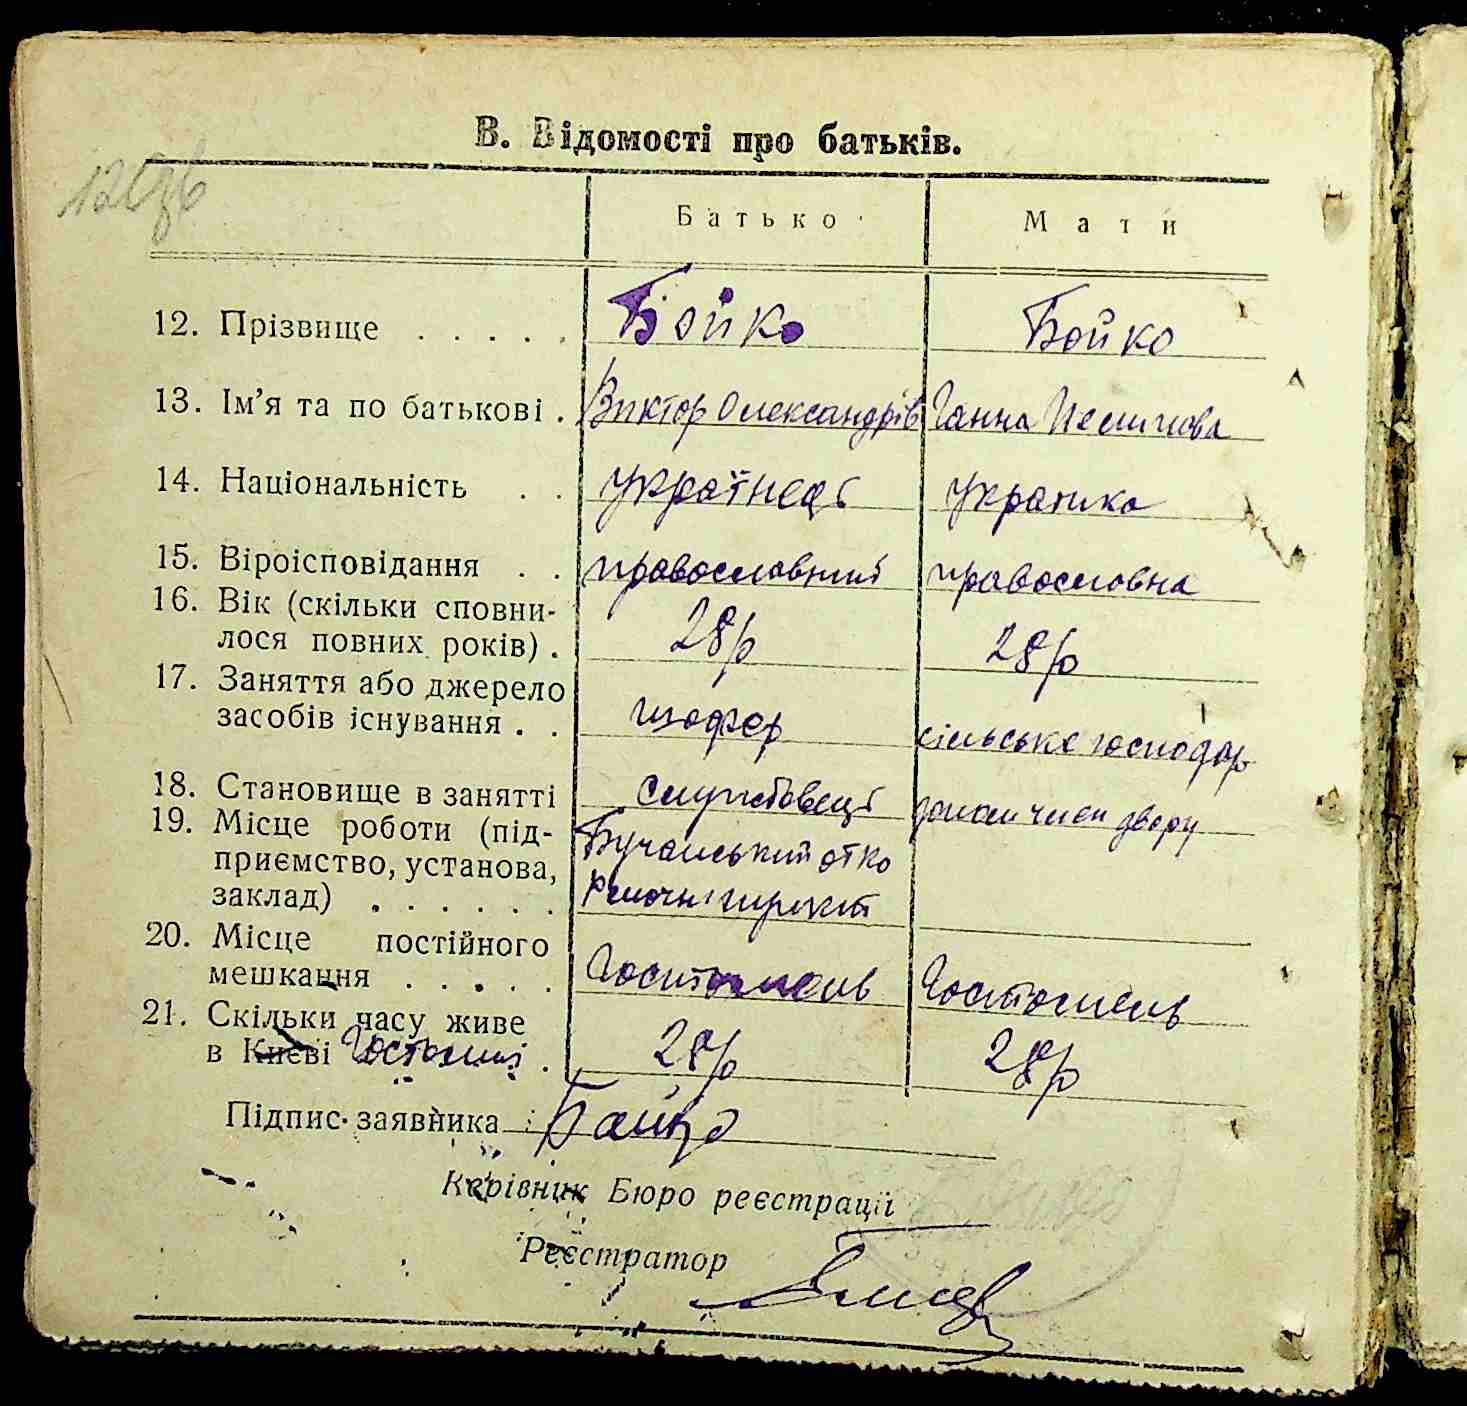 В. Відомості про батьків.
Батько Мати
12. Прізвище . . . . . Бойко Бойко
13. Ім’я та по батькові . Виктор Олександрів Ганна
14. Національність . . українець украинка
15. Віроісповідання . . православний православна
16. Вік (скільки сповни-
лося повних років) . 28р 28р
17. Заняття або джерело
засобів існування . . шофер сільське господар
18. Становище в занятті службовець двору
19. Місце роботи (під-
приємство, установа, Бучанський
заклад) . . . . . .
20. Місце постійного
мешкання . . . . . Гостомель Гостомель
21. Скільки часу живе
в Києві Гостомлі . 28р 28р
Підпис заявника Бойко
Керівник Бюро реєстрації
Реєстратор